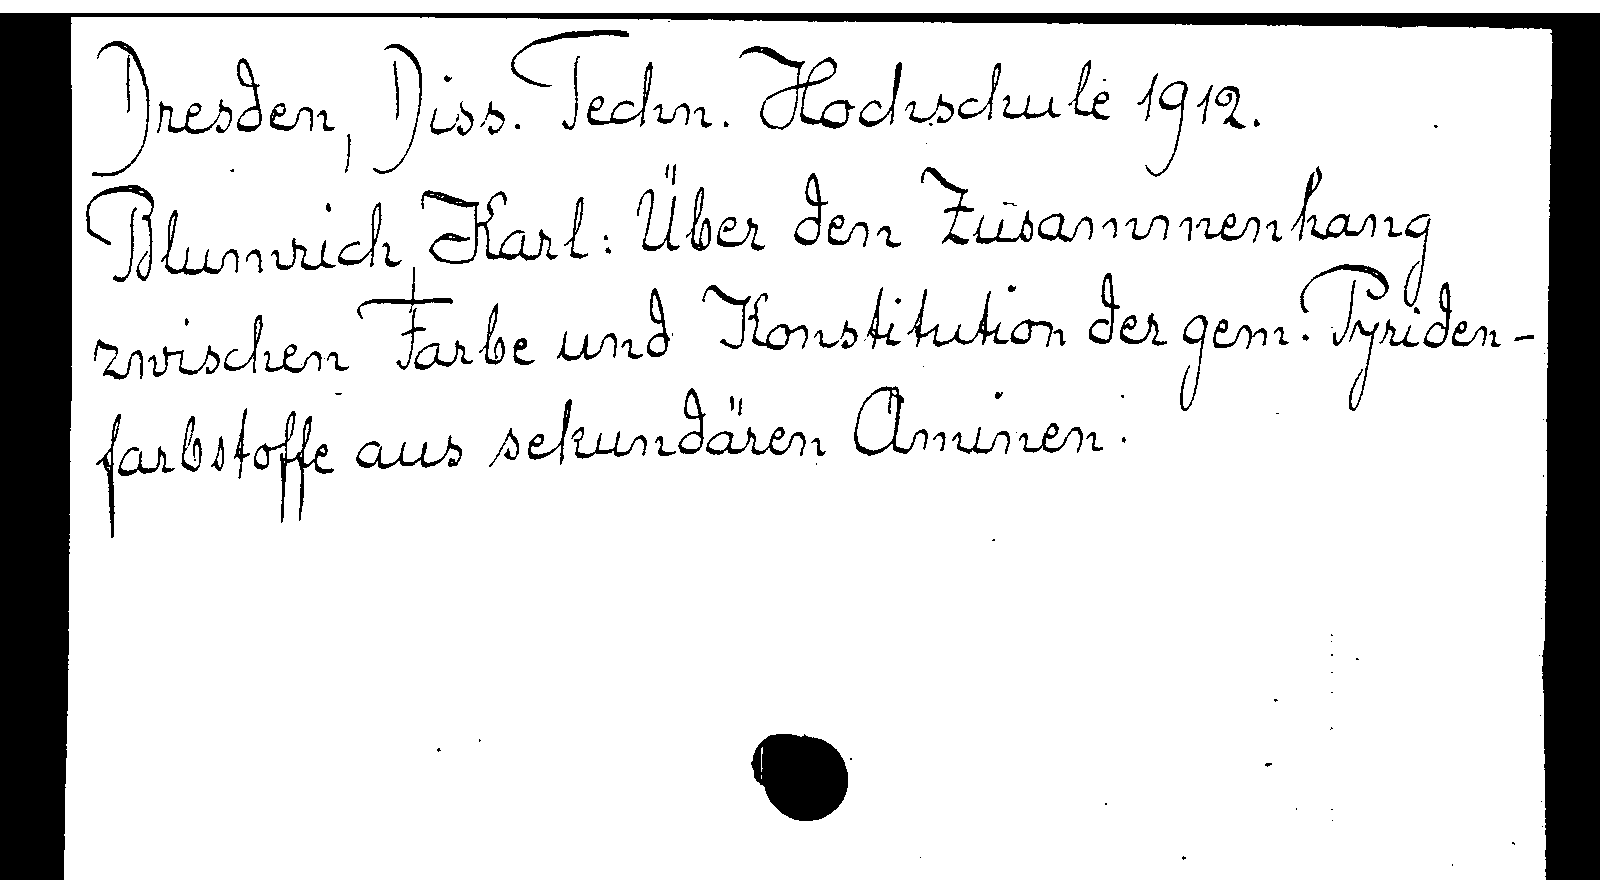 Dresden, Diss. Techn. Hochschule 1912.
Blumrich, Karl: Über den Zusammenhang
zwischen Farbe und Konstitution der gem. Pyriden-
farbstoffe aus sekundären Aminen.